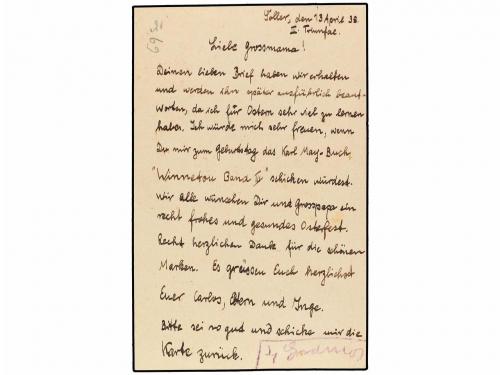 Soller, den 13 April 38.
II. Triunfal.
Liebe Grossmama!
Deinen lieben Brief haben wir erhalten
und werden ihn später ausführlich beant-
worten, da ich für Ostern sehr viel zu lernen
habe. Ich würde mich sehr freuen, wenn
Du mir zum Geburtstag das Karl May-Buch,
"Winnetou Band III" schicken würdest.
Wir alle wünschen Dir und Grosspapa ein
recht frohes und gesundes Osterfest.
Recht herzlichen Dank für die schönen
Marken. Es grüssen Euch herzlichst
Euer Carlos, Eltern und Inge.
Bitte sei so gut und schicke mir die
Karte zurück.